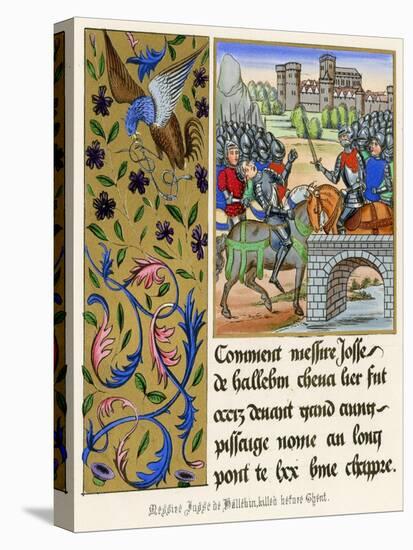 Comment messire Josse
de hallebin cheva lier fut
occiz devant gand aung
passaige nome au long
pont te lxx bme chappre.
Messire Jusse de Hallebin, killed before Ghent.